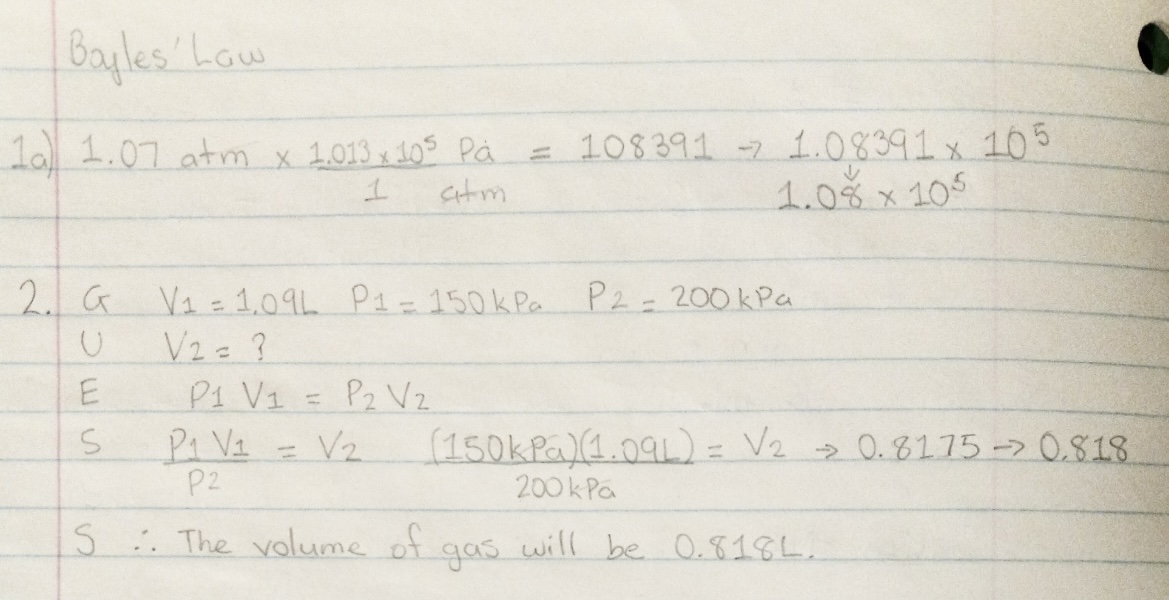 Boyles' Law
1a) 1.07 atm x 1.013 x 10⁵ Pa = 108391 → 1.08391 x 10⁵
1 atm ↓
1.08 x 10⁵
2. G V1 = 1.09L P1 = 150kPa P2 = 200kPa
U V2 = ?
E P1 V1 = P2 V2
S P1 V1 = V2 (150kPa)(1.09L) = V2 → 0.8175 → 0.818
P2 200kPa
S ∴ The volume of gas will be 0.818L.